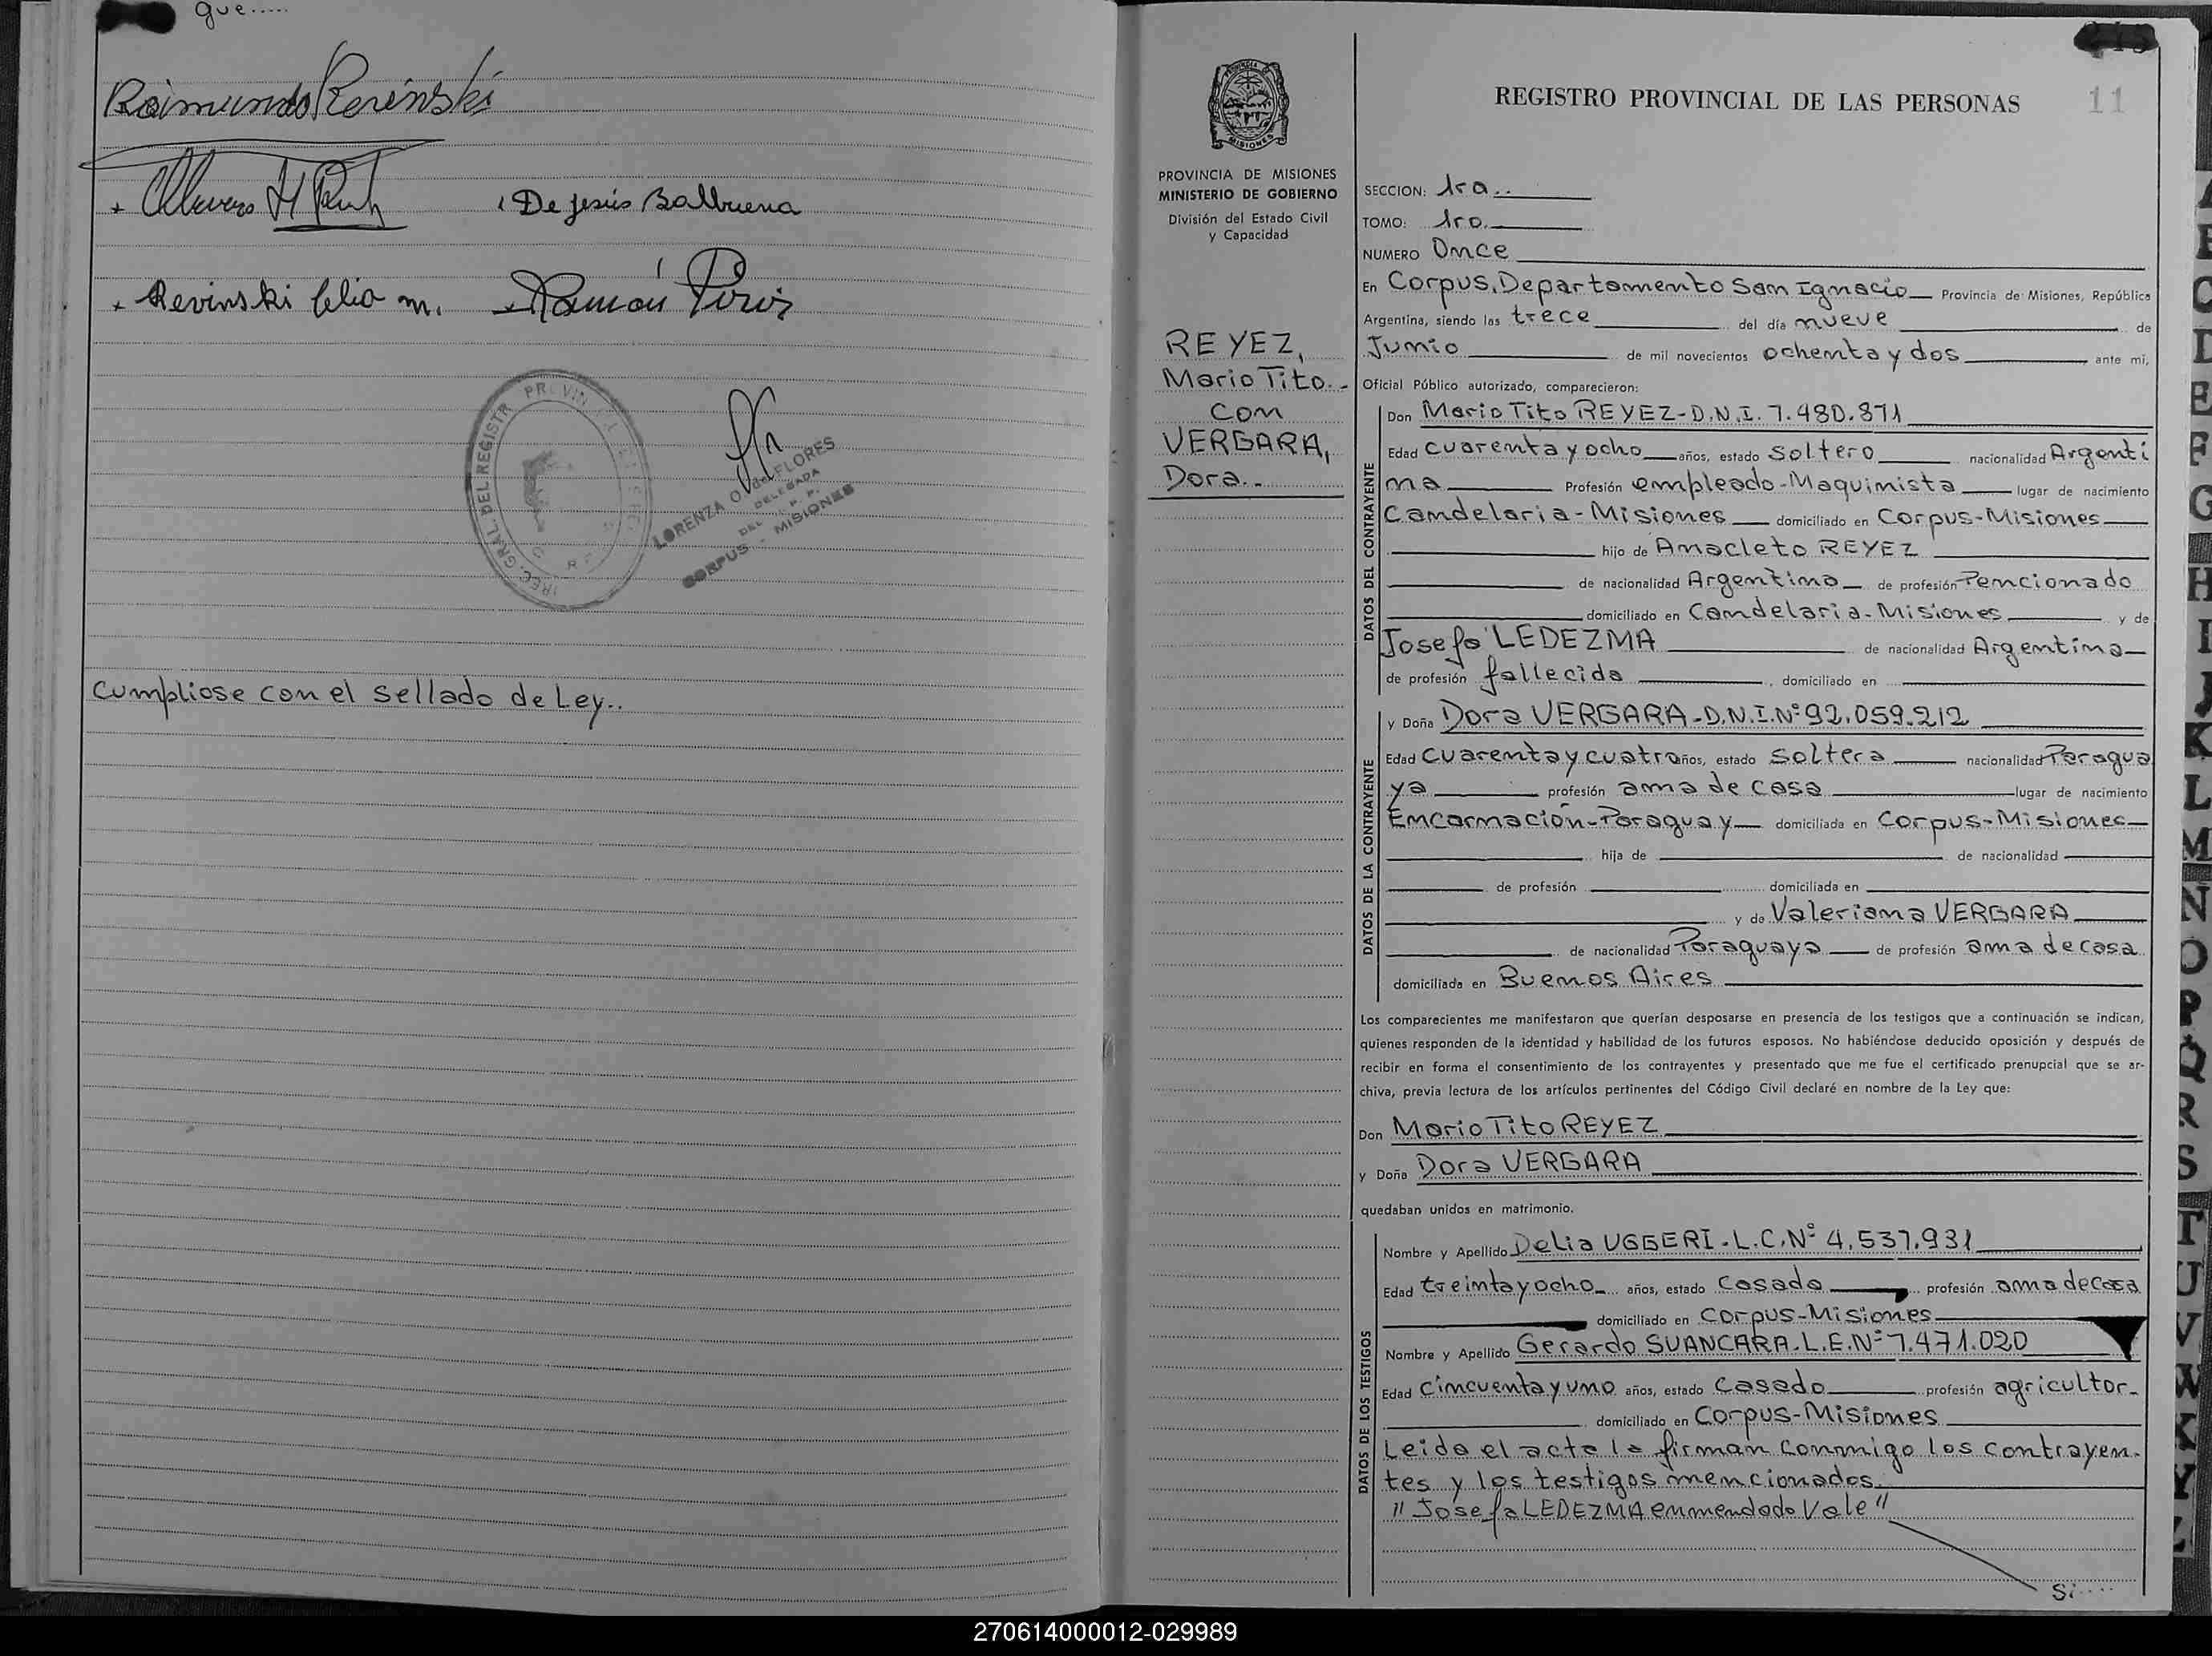 que.....
Raimundo Revinski
De Jesús Balbuena
Revinski Celia m. Ramón
DIREC. GRAL DEL REGISTR PROVIN
LORENZA O. de FLORES
DELEGADA
DEL R. P. P.
CORPUS - MISIONES
Cumpliose con el sellado de Ley..
PROVINCIA DE MISIONES
MINISTERIO DE GOBIERNO
División del Estado Civil
y Capacidad
REYEZ,
Mario Tito.-
con
VERGARA,
Dora.-
REGISTRO PROVINCIAL DE LAS PERSONAS 11
SECCION: 1ra..
TOMO: 1ro.
NUMERO Once
En Corpus, Departamento San Ignacio Provincia de Misiones, República
Argentina, siendo las trece del día nueve de
Junio de mil novecientos ochenta y dos ante mí,
Oficial Público autorizado, comparecieron:
DATOS DEL CONTRAYENTE
Don Mario Tito REYEZ-D.N.I. 7.480.871
Edad cuarenta y ocho años, estado soltero nacionalidad Argenti
na Profesión empleado-Maquinista lugar de nacimiento
Candelaria-Misiones domiciliado en Corpus-Misiones
hijo de Anacleto REYEZ
de nacionalidad Argentina de profesión Pencionado
domiciliado en Candelaria-Misiones y de
Josefa LEDEZMA de nacionalidad Argentina
de profesión fallecida, domiciliado en
DATOS DE LA CONTRAYENTE
y Doña Dora VERGARA-D.N.I.Nº 92.059.212
Edad cuarenta y cuatro años, estado soltera nacionalidad Paragua
ya profesión ama de casa lugar de nacimiento
Encarnación-Paraguay domiciliada en Corpus-Misiones
hija de de nacionalidad
de profesión domiciliada en
y de Valeriana VERGARA
de nacionalidad Paraguaya de profesión ama de casa
domiciliada en Buenos Aires
Los comparecientes me manifestaron que querían desposarse en presencia de los testigos que a continuación se indican,
quienes responden de la identidad y habilidad de los futuros esposos. No habiéndose deducido oposición y después de
recibir en forma el consentimiento de los contrayentes y presentado que me fue el certificado prenupcial que se ar-
chiva, previa lectura de los artículos pertinentes del Código Civil declaré en nombre de la Ley que:
Don Mario Tito REYEZ
y Doña Dora VERGARA
quedaban unidos en matrimonio.
DATOS DE LOS TESTIGOS
Nombre y Apellido Delia UGGERI-L.C.Nº 4.537.931
Edad treinta y ocho años, estado casada profesión ama de casa
domiciliado en Corpus-Misiones
Nombre y Apellido Gerardo SUANCARA.L.E.Nº 7.471.020
Edad cincuenta y uno años, estado casado profesión agricultor-
domiciliado en Corpus-Misiones
Leida el acta la firman conmigo los contrayen-
tes y los testigos mencionados.
"Josefa LEDEZMA enmendado Vale"
Si.....
A
B
C
D
E
F
G
H
I
J
K
L
M
N
O
P
Q
R
S
T
U
V
W
X
Y
Z
270614000012-029989